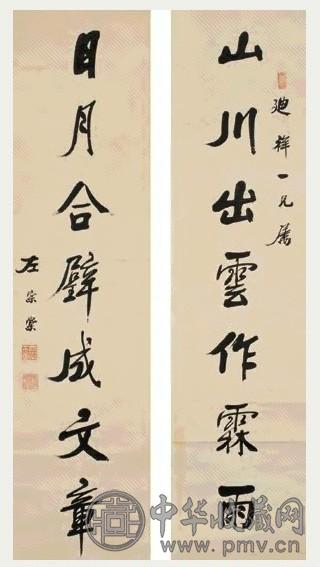 山川出雲作霖雨
迪祥一兄屬
日月合璧成文章
左宗棠
中华收藏网
www.pmv.cn